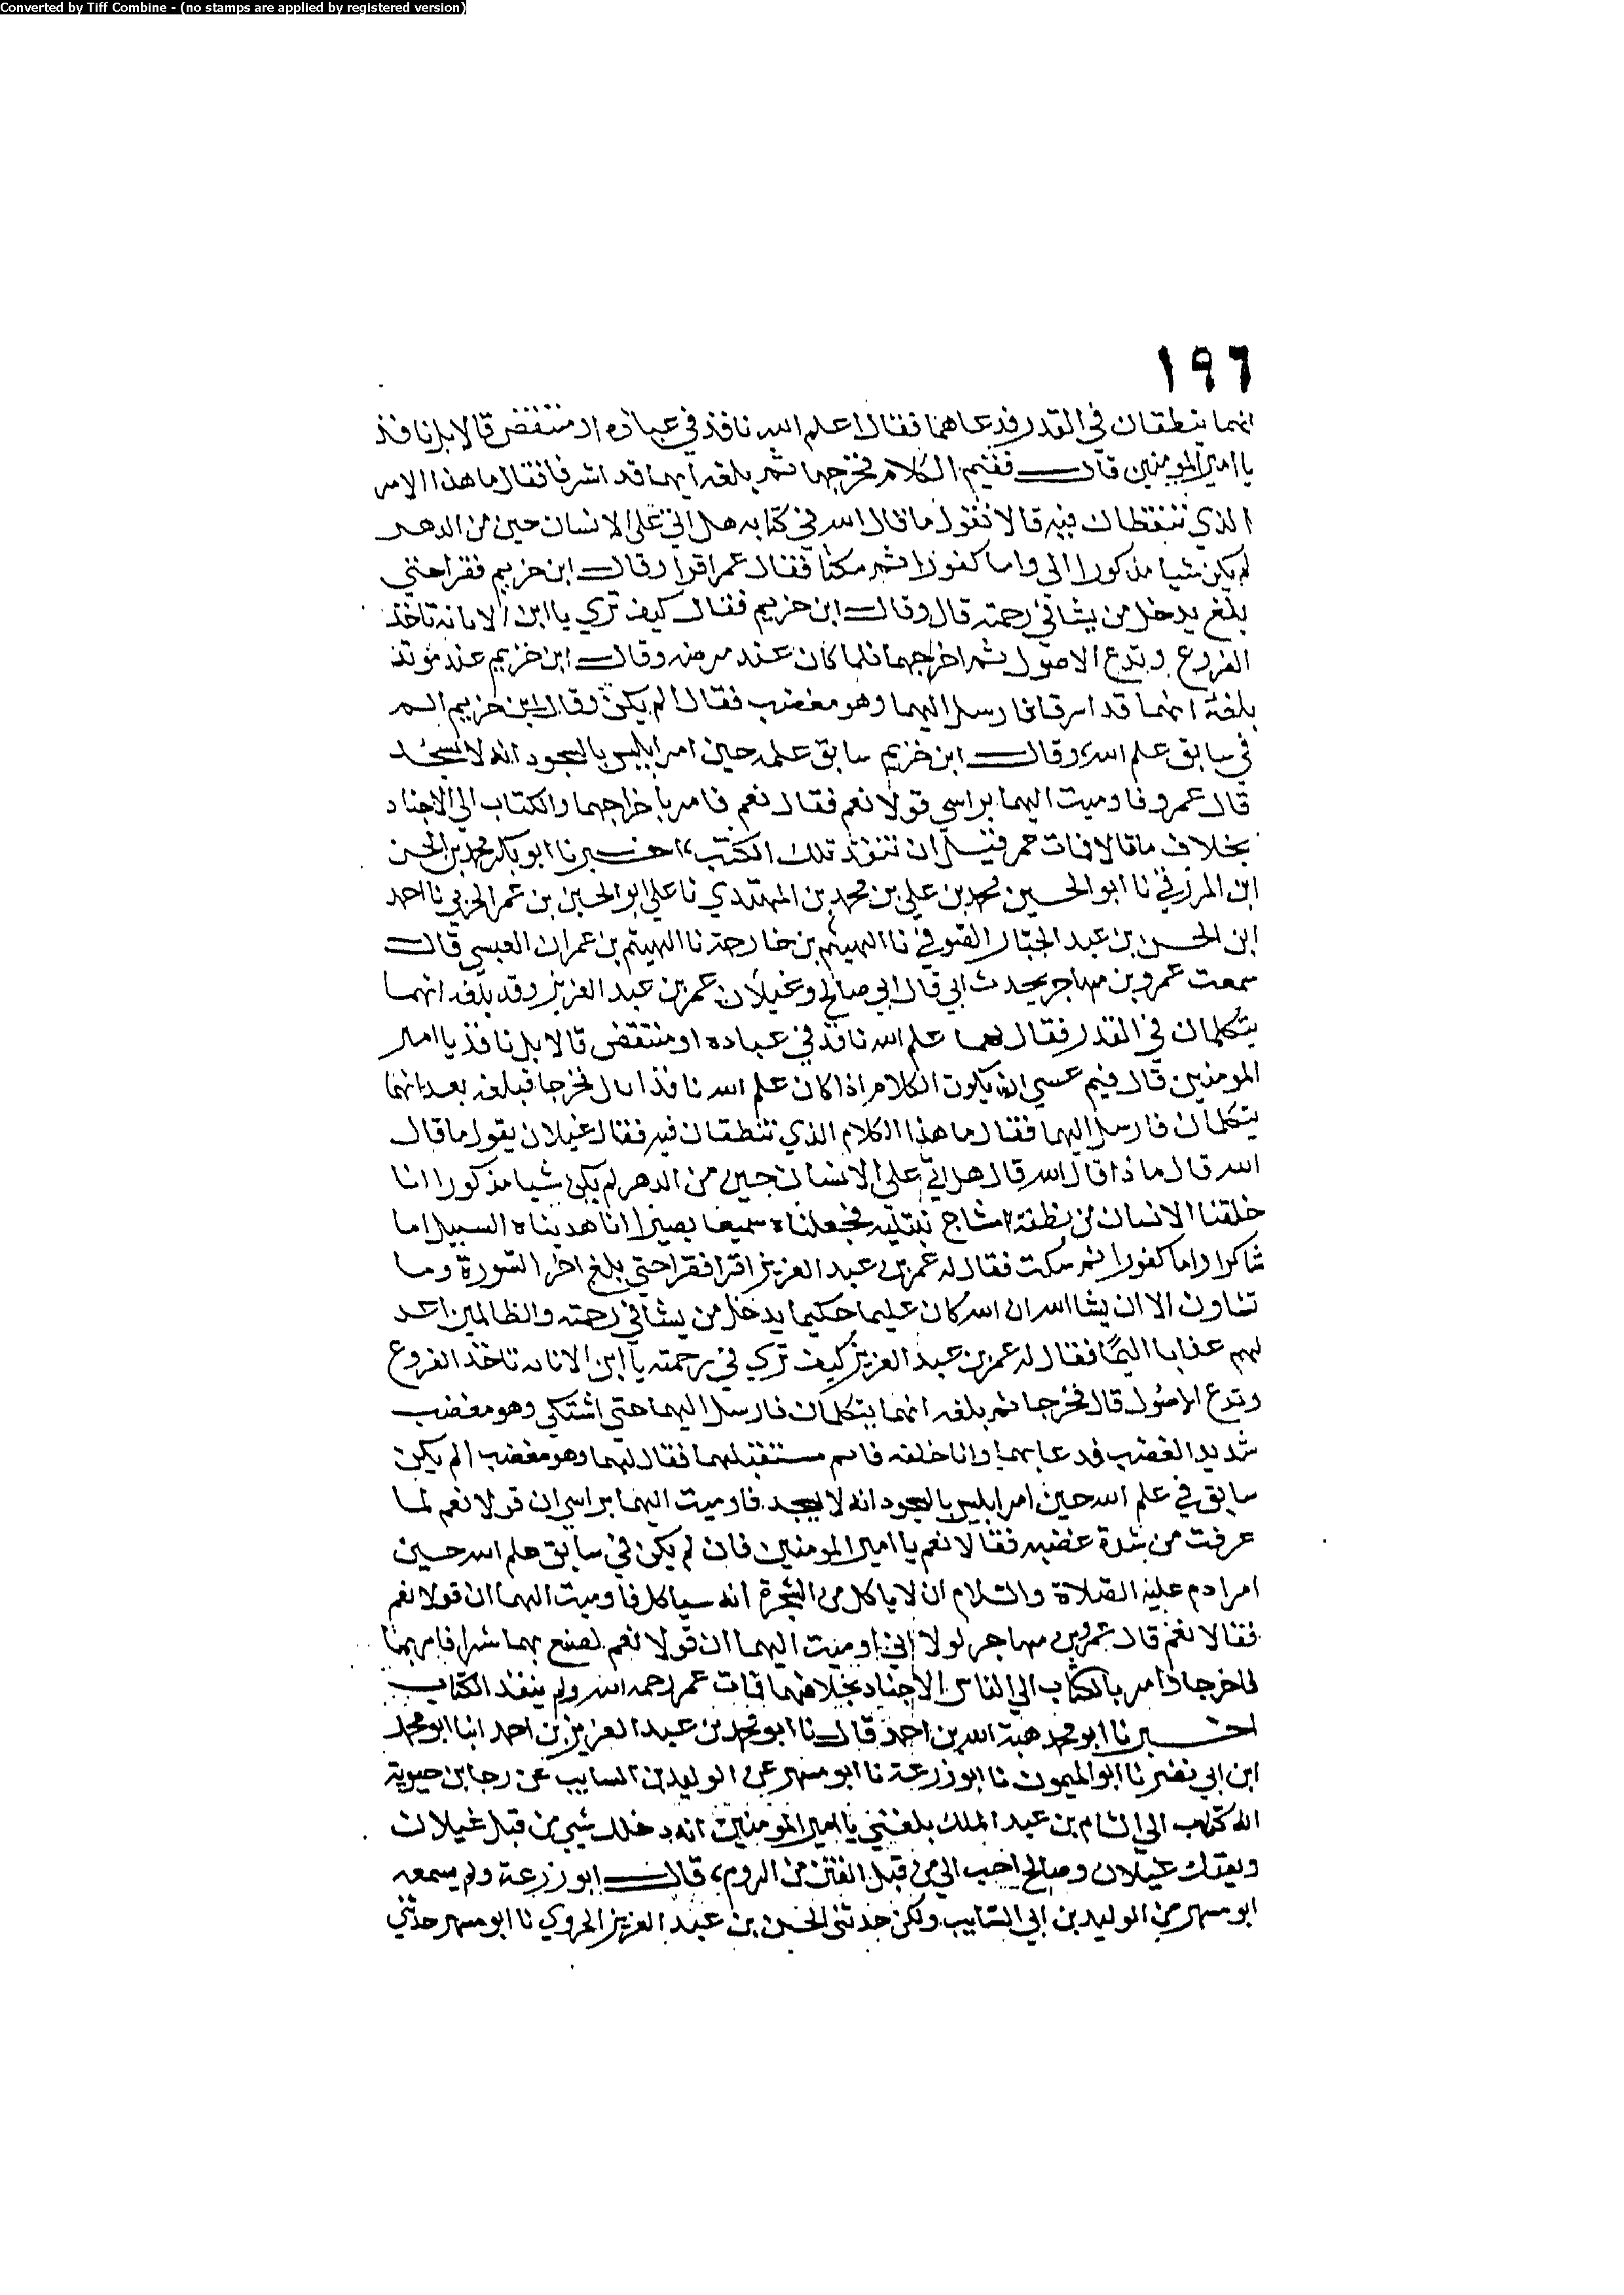 Converted by Tiff Combine - (no stamps are applied by registered version)
١٩٦
انهما ينطقان في القدر فدعاهما فقال اعلم الله نافذ في عباده ام منتقض قالا بل نافذ
يا امير المومنين قال ففيم الكلام فخرجا ثم بلغه انهما قد اشرفا فقال ما هذا الامر
الذي تنطقان فيه قالا نقول ما قال الله في كتابه هل اتى على الانسان حين من الدهر
لم يكن شيا مذكورا الى واما كفورا ثم سكتا فقال عمر اقرا وقال ابن خزيم فقرا حتي
بلغ يدخل من يشا في رحمته قال وقال ابن خزيم فقال كيف تري يا ابن الاتانه تاخذ
الفروع وتدع الاصول ثم اخرجهما فلما كان عند مرضه وقال ابن خزيم عند موته
بلغه انهما قد اسرفا فارسل اليهما وهو مغضب فقال الم يكن وقال ابن خزيم الم
في سابق علم الله وقال ابن خزيم سابق علمه حين امر ابليس بالسجود انه لا يسجد
قال عمرو فاوميت اليهما براسي قولا نعم فقال نعم فامر باخراجهما والكتاب الي الاجناد
بخلاف ما قالا فمات عمر قبل ان تنفذ تلك الكتب، اخبرنا ابو بكر محمد بن الحسن
ابن المزرفي نا ابو الحسين محمد بن علي بن محمد بن المهتدي نا علي ابو الحسن بن عمر الحربي نا احمد
ابن الحسن بن عبد الجبار الصوفي نا الهيثم بن خارجة نا الهيثم بن عمران العبسي قال
سمعت عمرو بن مهاجر يحدث ابي قال ابي صالح وغيلان عمر بن عبد العزيز وقد بلغه انهما
يتكلمان في القدر فقال لهما علم الله نافذ في عباده او منتقض قالا بل نافذ يا امير
المومنين قال فيم عسي ان يكون الكلام اذا كان علم الله نافذا قال فخرجا فبلغه بعد انهما
يتكلمان فارسل اليهما فقال ما هذا الكلام الذي تنطقان فيه فقال غيلان يقول ما قال
الله قال ماذا قال الله قال هل اتي على الانسان حين من الدهر لم يكن شيا مذكورا انا
خلقنا الانسان من نطفة امشاج نبتليه فجعلناه سميعا بصيرا انا هديناه السبيل اما
شاكرا واما كفورا ثم سكت فقال له عمر بن عبد العزيز اقرا فقرا حتي بلغ اخر السورة وما
تشاون الا ان يشا الله ان الله كان عليما حكيما يدخل من يشا في رحمته والظالمين اعد
لهم عذابا اليما فقال له عمر بن عبد العزيز كيف تري في رحمته يا ابن الاتانه تاخذ الفروع
وتدع الاصول قال فخرجا ثم بلغه انهما يتكلمان فارسل اليهما حتي اشتكي وهو مغضب
شديد الغضب فدعا بهما وانا خلفه قايم مستقبلهما فقال لهما وهو مغضب الم يكن
سابق في علم الله حين امر ابليس بالسجود انه لا يسجد فاوميت اليهما براسي ان قولا نعم لما
عرفت من شدة غضبه فقالا نعم يا امير المومنين فان لم يكن في سابق علم الله حين
امر ادم عليه الصلاة والسلام ان لا ياكل من الشجرة انه سياكل فاوميت اليهما ان قولا نعم
فقالا نعم قال عمرو بن مهاجر لولا اني اوميت اليهما ان قولا نعم لصنع بهما شرا فامر بهما
فاخرجا وامر بالكتاب الي الناس الاجناد بخلافهما فمات عمر رحمه الله ولم ينفذ الكتاب
اخبرنا ابو محمد هبة الله بن احمد قال نا ابو محمد بن عبد العزيز بن احمد انبا ابو محمد
ابن ابي نصر نا ابو الميمون نا ابو زرعة نا ابو مسهر عن الوليد بن السايب عن رجا بن حيوية
انه كتب الي هشام بن عبد الملك بلغني يا امير المومنين انه دخلك شي من قبل غيلان
ويقتل غيلان وصالح احب الي من قبل الفتن من الروم، قال ابو زرعة ولم يسمعه
ابو مسهر من الوليد بن ابي السايب ولكن حدثني الحسن بن عبد العزيز الجروي نا ابو مسهر حدثني